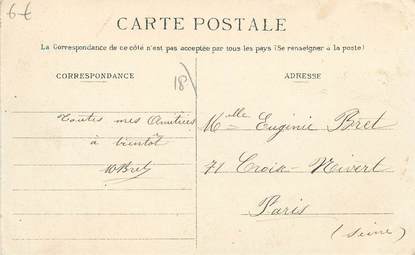 6€
CARTE POSTALE
La Correspondance de ce côté n'est pas acceptée par tous les pays (Se renseigner à la poste)
CORRESPONDANCE
18)
ADRESSE
Toutes mes Amitiés
à bientôt
Bret
Mlle Eugénie Bret
71 Croix-Nivert
Paris
(Seine)